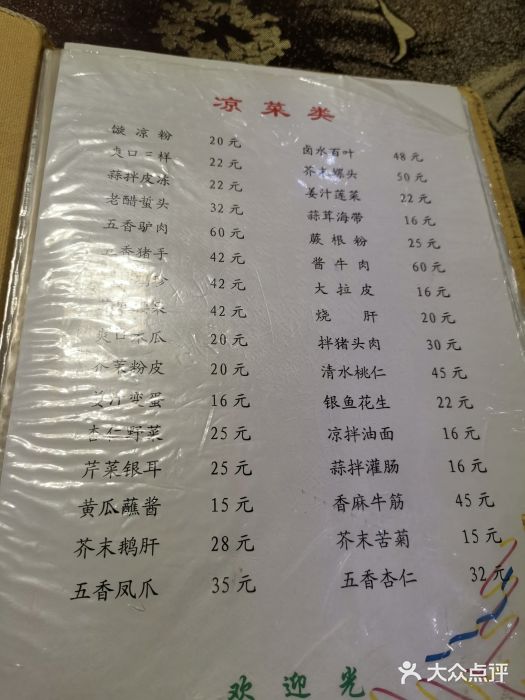 凉菜类
馓凉粉 20元
爽口三样 22元
蒜拌皮冻 22元
老醋蜇头 32元
五香驴肉 60元
五香猪手 42元
42元
42元
爽口木瓜 20元
芥菜粉皮 20元
姜汁变蛋 16元
杏仁野菜 25元
芹菜银耳 25元
黄瓜蘸酱 15元
芥末鹅肝 28元
五香凤爪 35元
卤水百叶 48元
芥末螺头 50元
姜汁莲菜 22元
蒜茸海带 16元
蕨根粉 25元
酱牛肉 60元
大拉皮 16元
烧肝 20元
拌猪头肉 30元
清水桃仁 45元
银鱼花生 22元
凉拌油面 16元
蒜拌灌肠 16元
香麻牛筋 45元
芥末苦菊 15元
五香杏仁 32元
欢迎光
大众点评